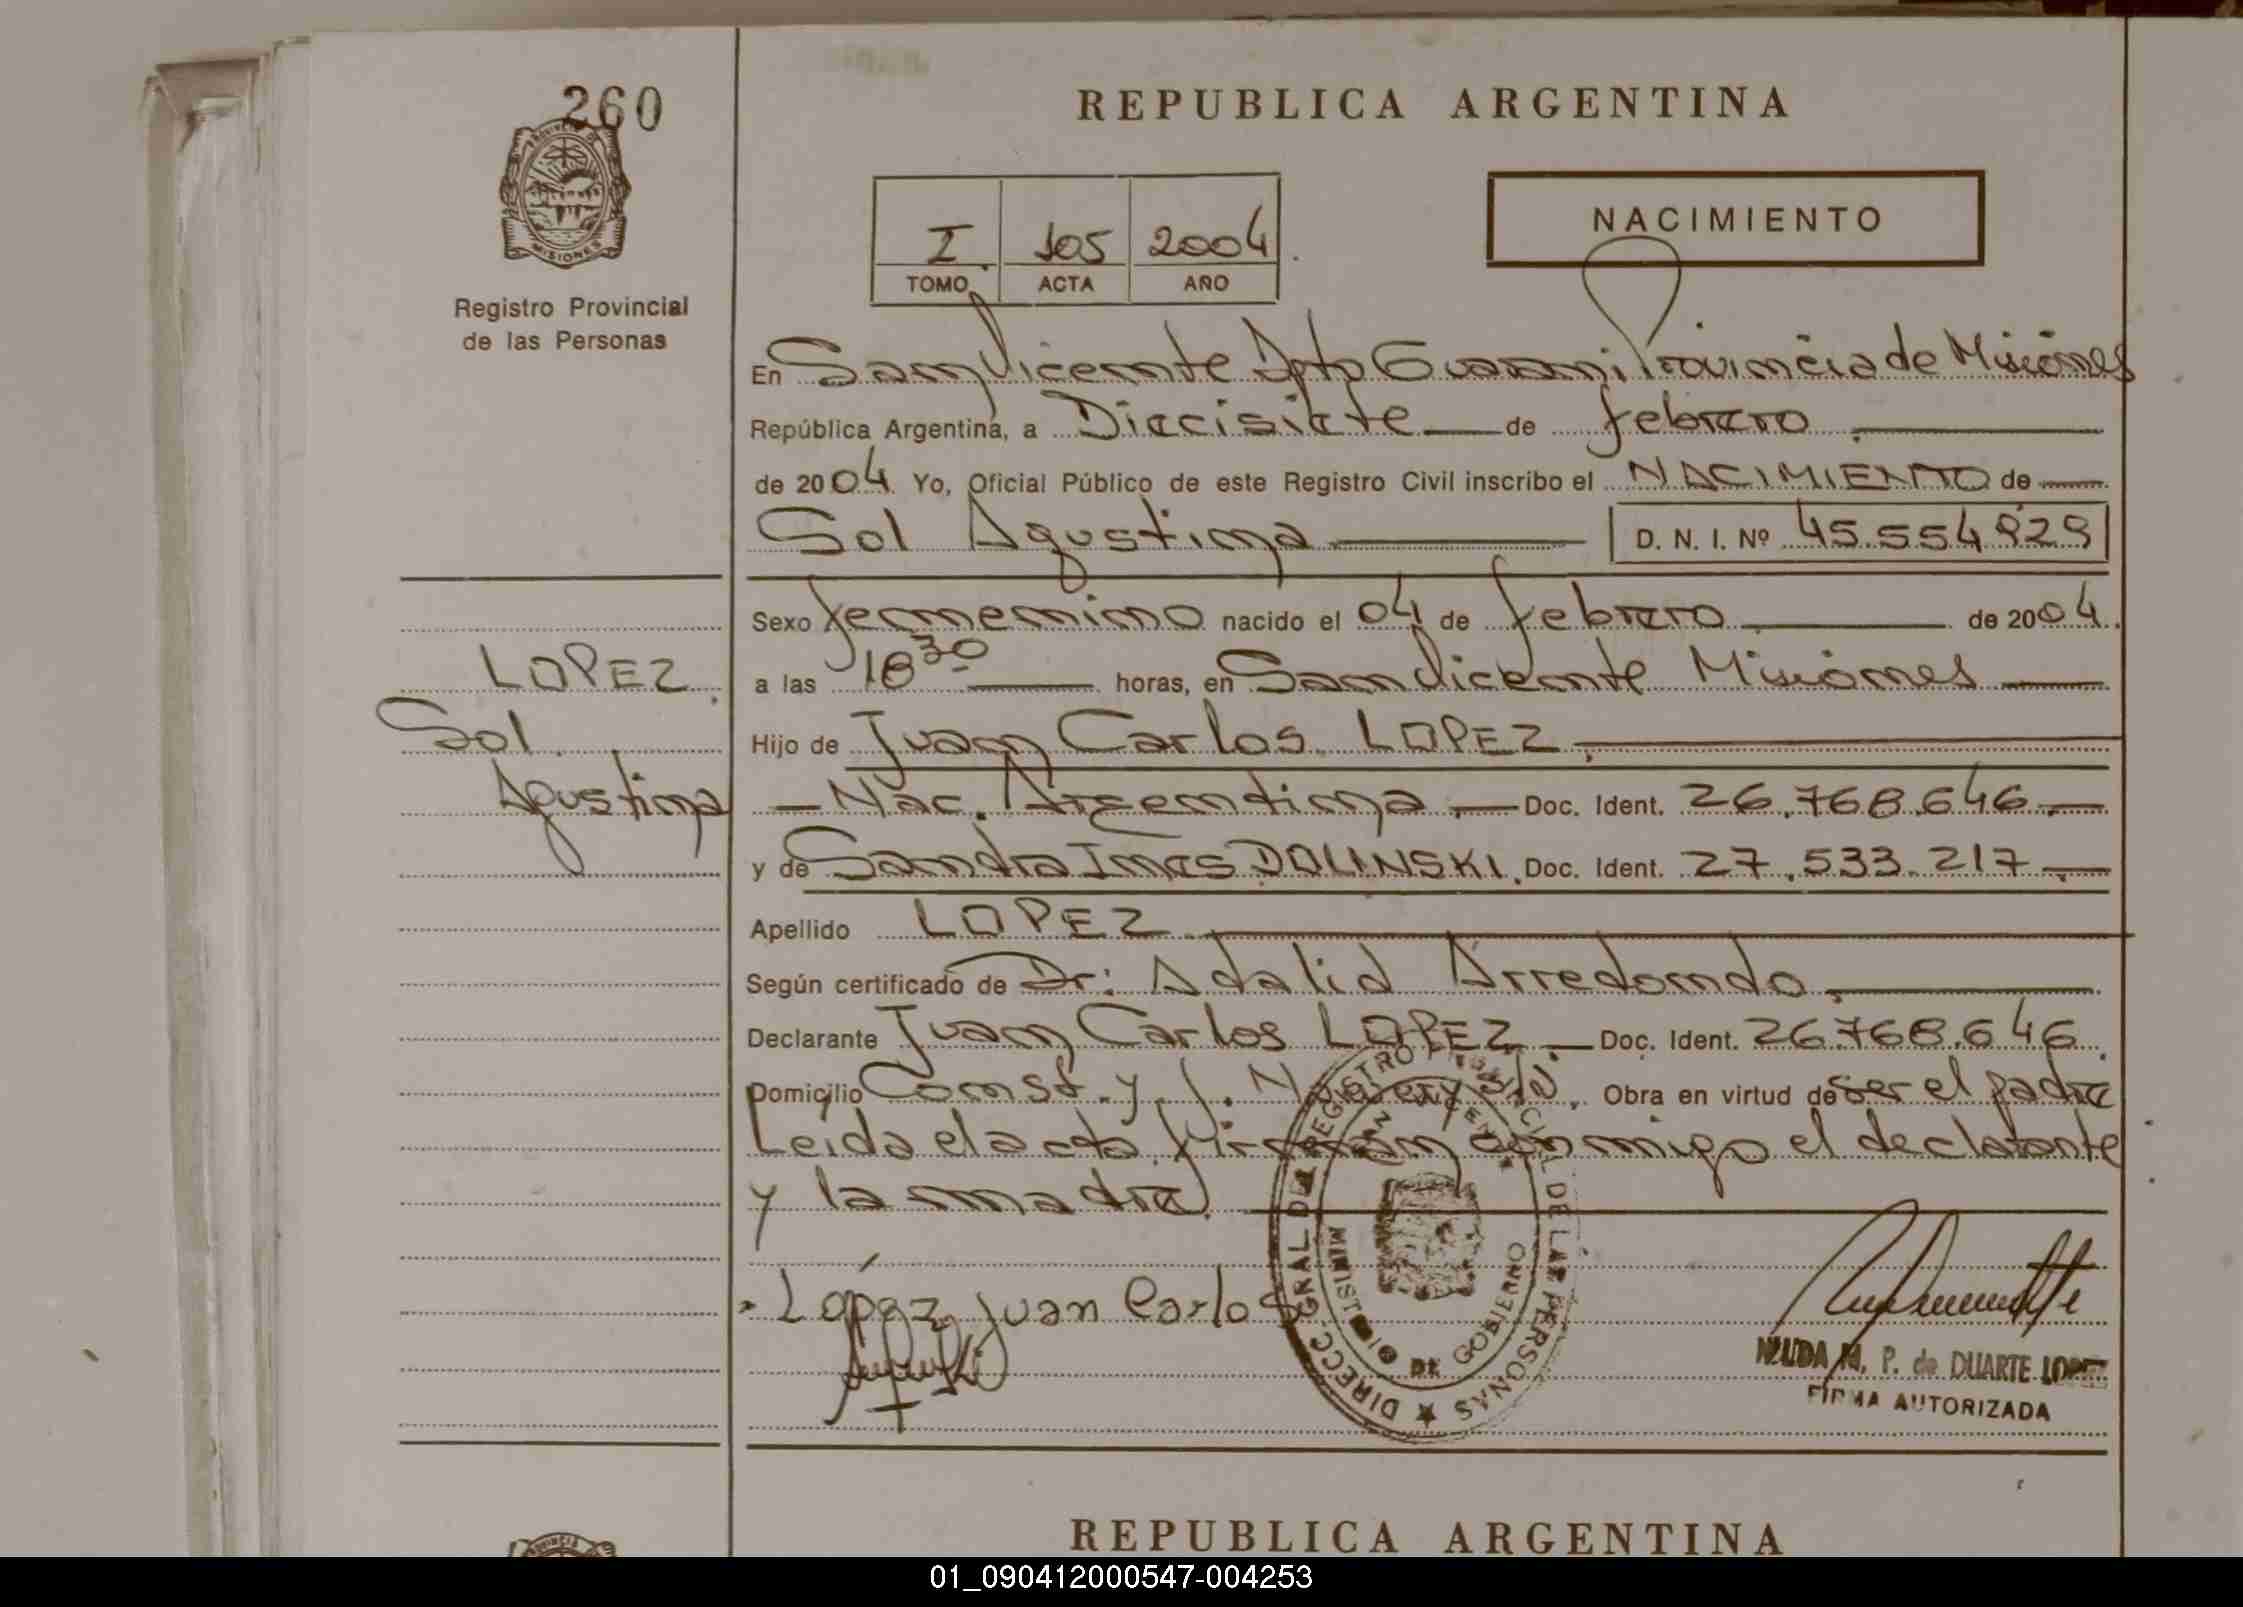 260
PROVINCIA DE
MISIONES
Registro Provincial
de las Personas
REPUBLICA ARGENTINA
I 105 2004
TOMO ACTA AÑO
NACIMIENTO
En San Vicente Dpto Guarani Provincia de Misiones
República Argentina, a Diecisiete de febrero
de 2004 Yo, Oficial Público de este Registro Civil inscribo el NACIMIENTO de
Sol Agustina D. N. I. Nº 45.554.829
Sexo femenino nacido el 04 de febrero de 2004
LOPEZ
a las 18 30 horas, en San Vicente Misiones
Sol
Hijo de Juan Carlos LOPEZ
Agustina
Nac. Argentina Doc. Ident. 26.768.646
y de Sandra Ines DOLINSKI Doc. Ident. 27.533.217
Apellido LOPEZ
Según certificado de Dr: Adalid Arredondo
Declarante Juan Carlos LOPEZ Doc. Ident. 26.768.646
Domicilio Const. y J. s/n. Obra en virtud de ser el padre
Leida el acta firman conmigo el declarante
y la madre
López Juan Carlos
DIRECC. GRAL DEL REGISTRO PROVINCIAL DE LAS PERSONAS
SAN VICENTE
MINISTERIO DE GOBIERNO
M. P. de DUARTE LOPEZ
FIRMA AUTORIZADA
REPUBLICA ARGENTINA
PROVINCIA
01_090412000547-004253